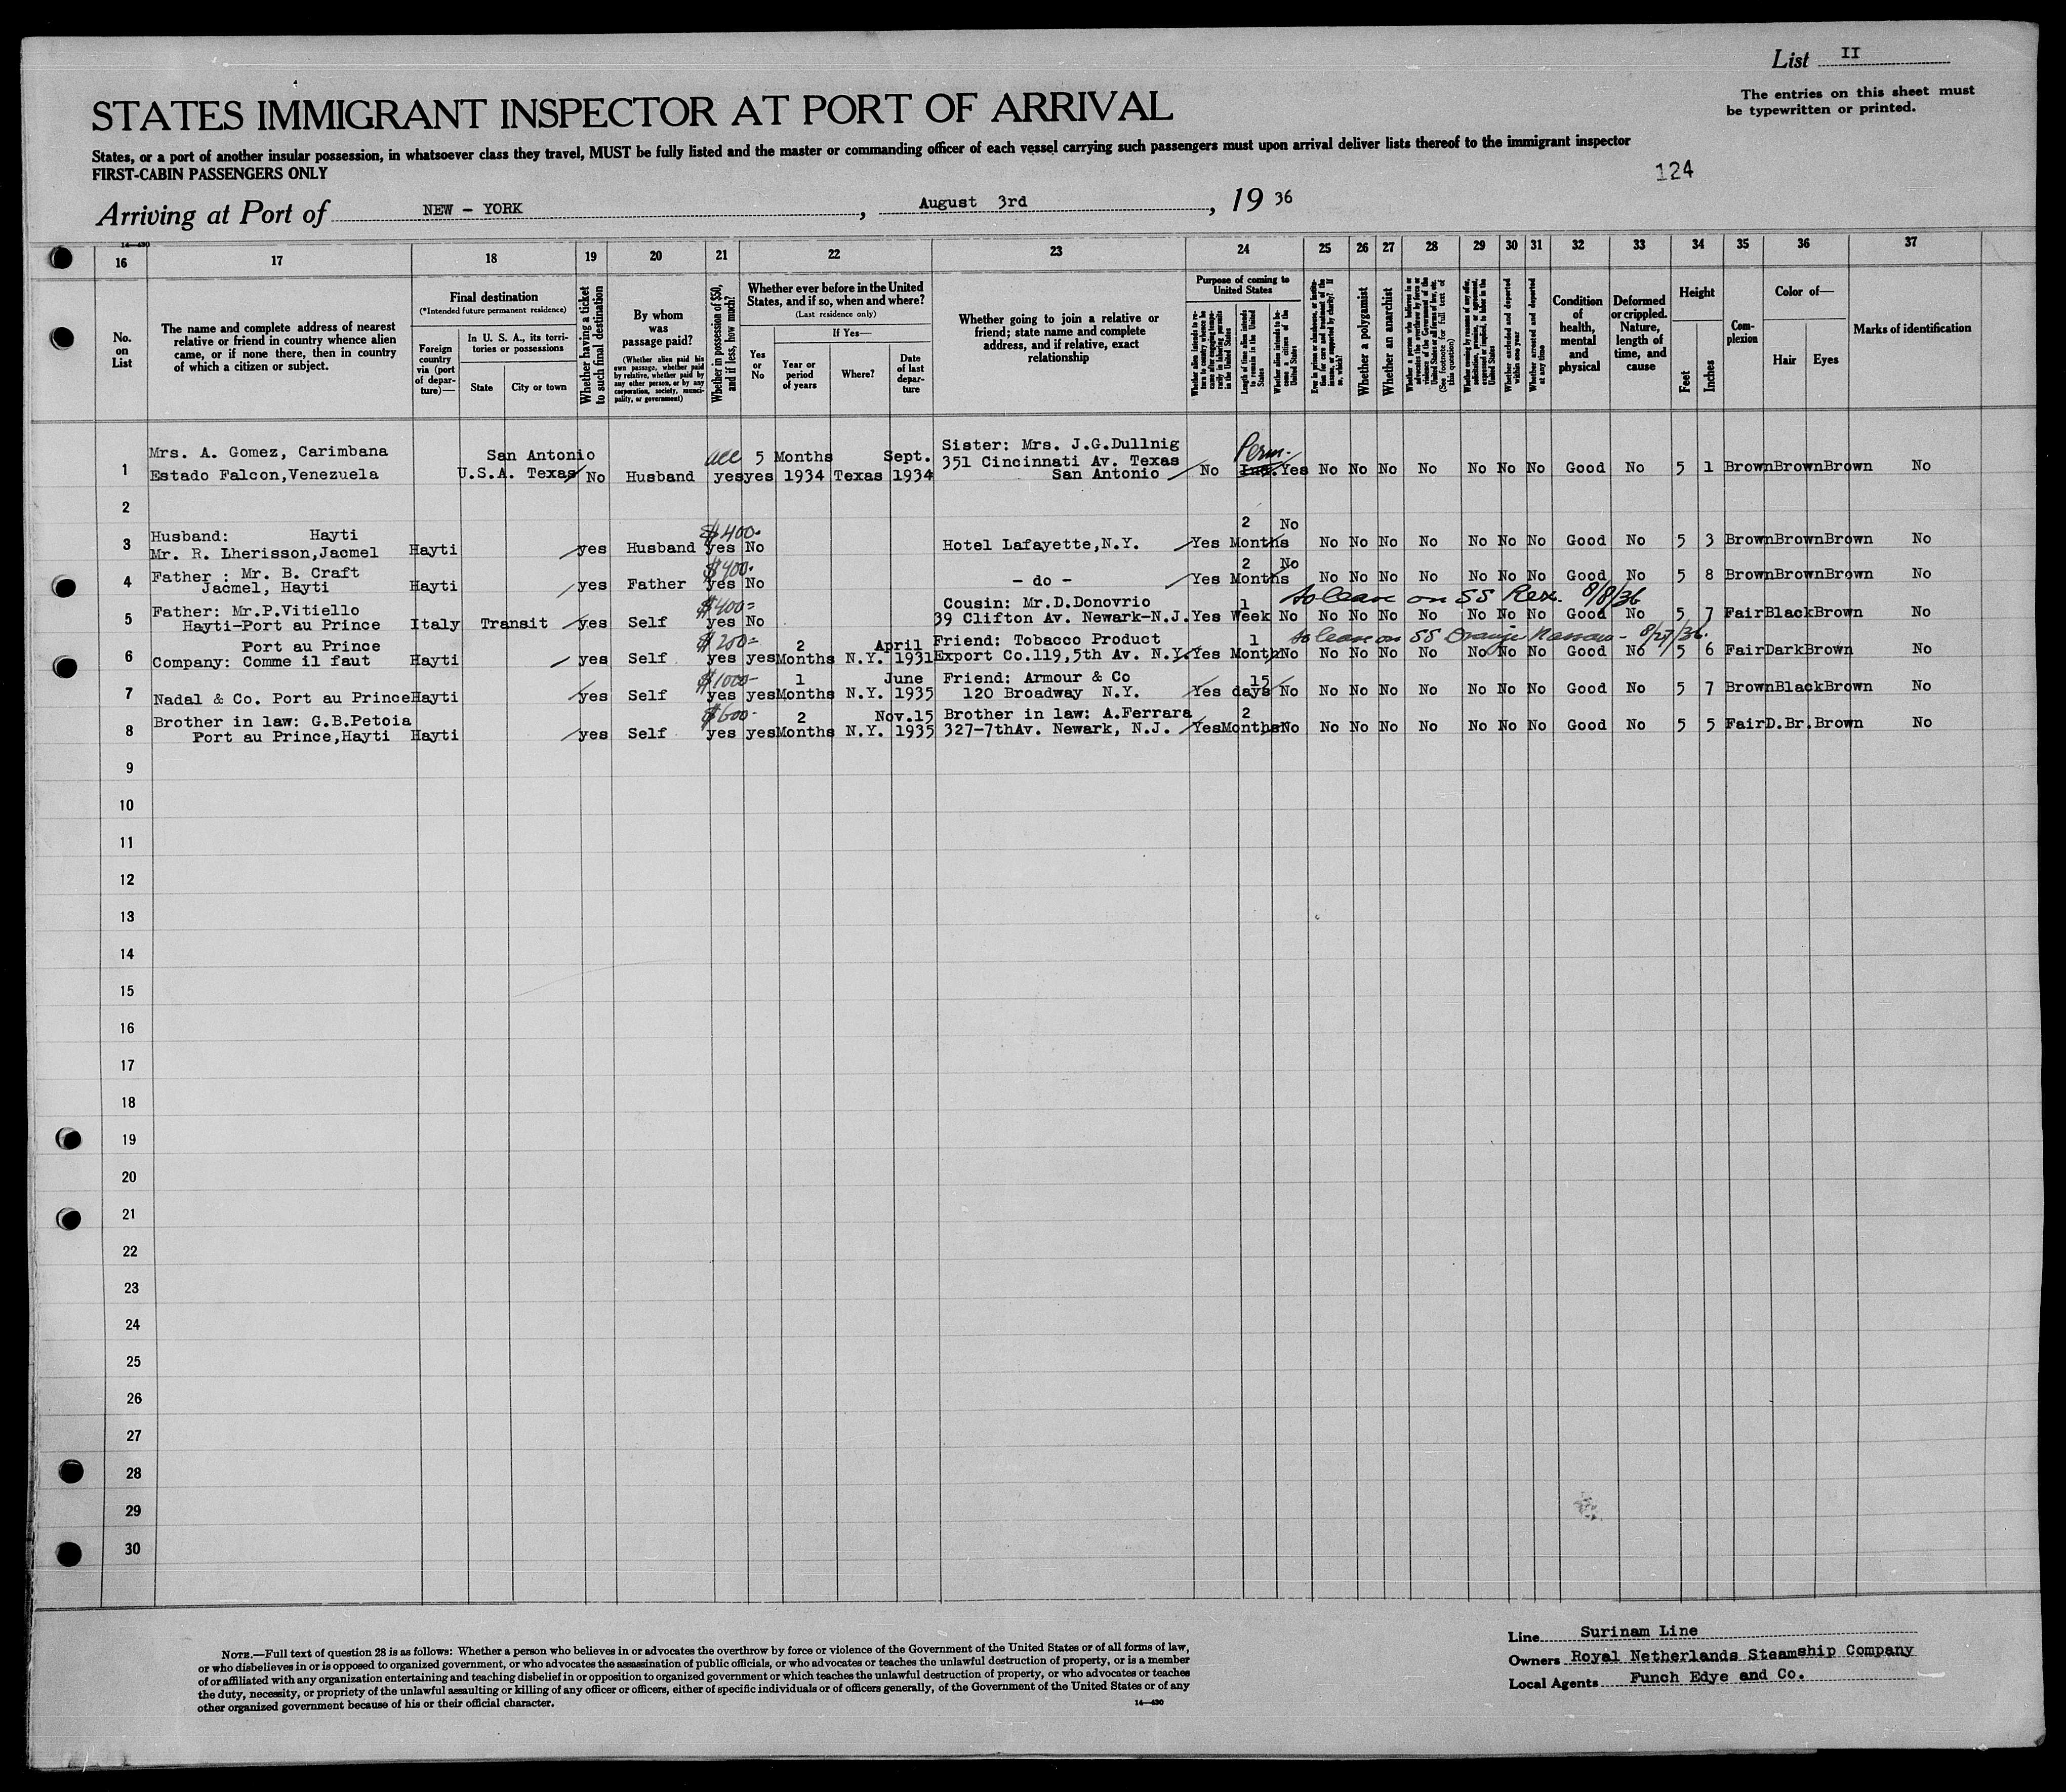 List II
The entries on this sheet must
be typewritten or printed.
STATES IMMIGRANT INSPECTOR AT PORT OF ARRIVAL
States, or a port of another insular possession, in whatsoever class they travel, MUST be fully listed and the master or commanding officer of each vessel carrying such passengers must upon arrival deliver lists thereof to the immigrant inspector
FIRST-CABIN PASSENGERS ONLY
124
Arriving at Port of NEW - YORK, August 3rd, 19 36
14-430
16 17 18 19 20 21 22 23 24 25 26 27 28 29 30 31 32 33 34 35 36 37
No. on List
The name and complete address of nearest
relative or friend in country whence alien
came, or if none there, then in country
of which a citizen or subject.
Final destination
(*Intended future permanent residence)
Foreign country via (port of departure)—
In U. S. A., its territories or possessions
State
City or town
Whether having a ticket to such final destination
By whom was passage paid?
(Whether alien paid his own passage, whether paid by relative, whether paid by any other person, or by any corporation, society, municipality, or government)
Whether in possession of $50, and if less, how much?
Whether ever before in the United States, and if so, when and where?
(Last residence only)
Yes or No
If Yes—
Year or period of years
Where?
Date of last departure
Whether going to join a relative or
friend; state name and complete
address, and if relative, exact
relationship
Purpose of coming to United States
Length of time alien intends to remain in the United States
Whether alien intends to become a citizen of the United States
Whether a polygamist
Whether an anarchist
Whether excluded and deported within one year
Whether arrested and deported at any time
Condition of health, mental and physical
Deformed or crippled. Nature, length of time, and cause
Height
Feet
Inches
Complexion
Color of—
Hair
Eyes
Marks of identification
Mrs. A. Gomez, Carimbana San Antonio all 5 Months Sept. Sister: Mrs. J.G.Dullnig Perm.
351 Cincinnati Av. Texas
1 Estado Falcon,Venezuela U.S.A. Texas No Husband yes yes 1934 Texas 1934 San Antonio No Yes No No No No No No No Good No 5 1 Brown Brown Brown No
2
Husband: Hayti $400. 2 No
3 Mr. R. Lherisson,Jacmel Hayti yes Husband yes No Hotel Lafayette,N.Y. Yes Months No No No No No No No Good No 5 3 Brown Brown Brown No
Father : Mr. B. Craft $400. 2 No
4 Jacmel, Hayti Hayti yes Father yes No - do - Yes Months No No No No No No No Good No 5 8 Brown Brown Brown No
Father: Mr.P.Vitiello $400= Cousin: Mr.D.Donovrio 1 to leave on SS Rex. 8/8/36
5 Hayti-Port au Prince Italy Transit yes Self yes No 39 Clifton Av. Newark-N.J. Yes Week No No No No No No No No Good No 5 7 Fair Black Brown No
Port au Prince $250= 2 April Friend: Tobacco Product 1 to leave on SS Oranje Nassau - 8/27/36.
6 Company: Comme il faut Hayti yes Self yes yes Months N.Y. 1931 Export Co.119,5th Av. N.Y. Yes Month No No No No No No No No Good No 5 6 Fair Dark Brown No
$1000- 1 June Friend: Armour & Co 15
7 Nadal & Co. Port au Prince Hayti yes Self yes yes Months N.Y. 1935 120 Broadway N.Y. Yes days No No No No No No No No Good No 5 7 Brown Black Brown No
Brother in law: G.B.Petoia $600- 2 Nov.15 Brother in law: A.Ferrara 2
8 Port au Prince,Hayti Hayti yes Self yes yes Months N.Y. 1935 327-7thAv. Newark, N.J. Yes Months No No No No No No No No Good No 5 5 Fair D.Br. Brown No
9
10
11
12
13
14
15
16
17
18
19
20
21
22
23
24
25
26
27
28
29
30
NOTE.—Full text of question 28 is as follows: Whether a person who believes in or advocates the overthrow by force or violence of the Government of the United States or of all forms of law,
or who disbelieves in or is opposed to organized government, or who advocates the assassination of public officials, or who advocates or teaches the unlawful destruction of property, or is a member
of or affiliated with any organization entertaining and teaching disbelief in or opposition to organized government or which teaches the unlawful destruction of property, or who advocates or teaches
the duty, necessity, or propriety of the unlawful assaulting or killing of any officer or officers, either of specific individuals or of officers generally, of the Government of the United States or of any
other organized government because of his or their official character.
14-430
Line Surinam Line
Owners Royal Netherlands Steamship Company
Local Agents Funch Edye and Co.